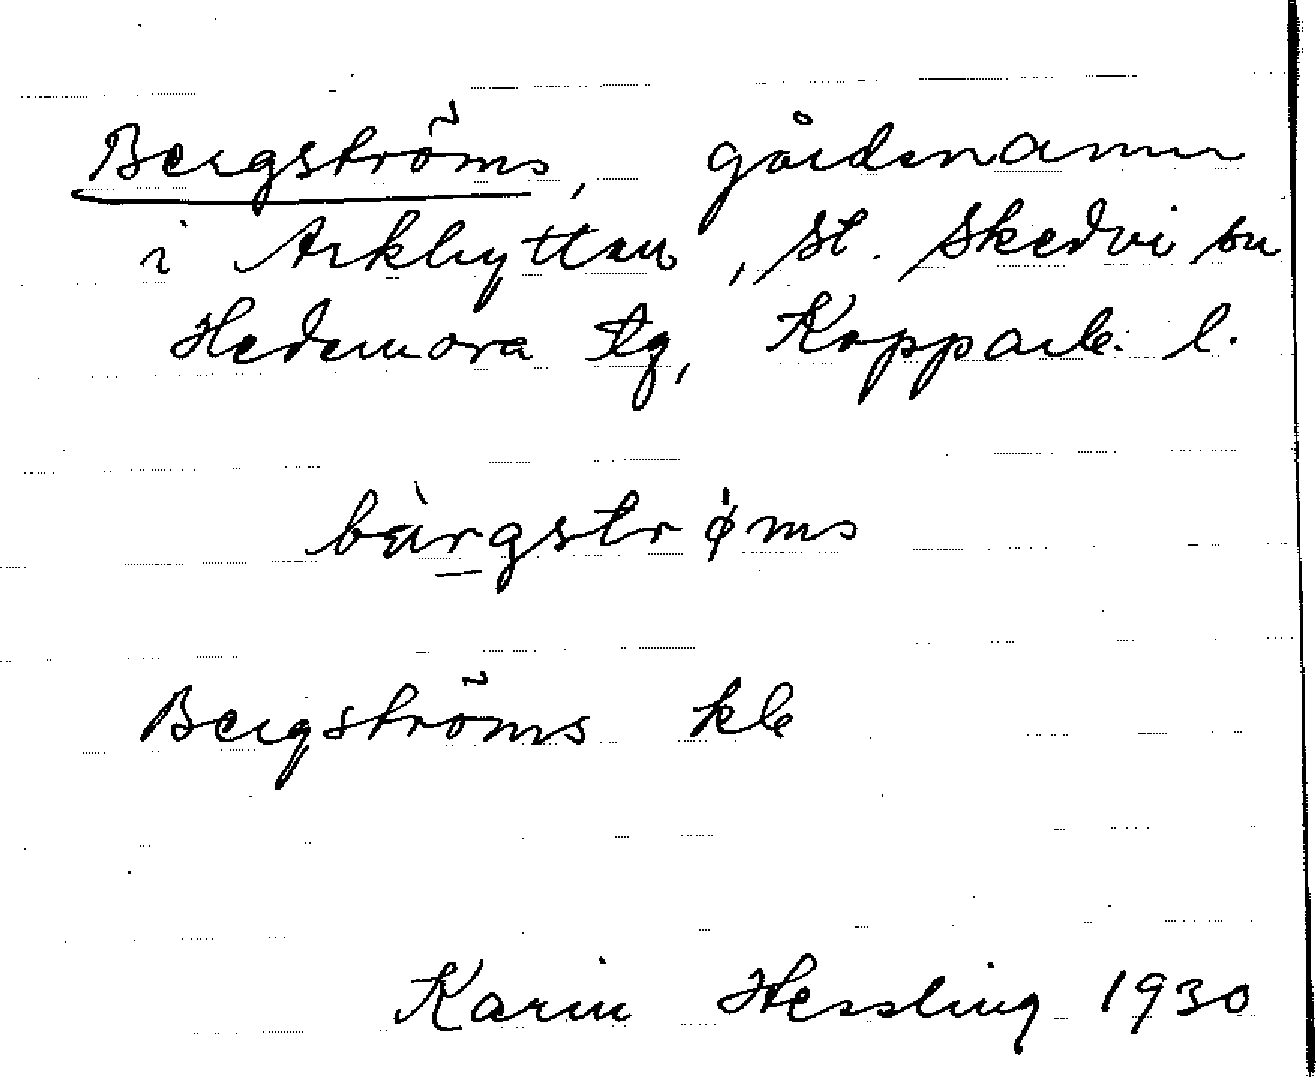 Bergströms, gårdsnamn
i Arkhyttan, St. Skedvi sn
Hedemora tg, Kopparb. l.
bärgstrøms
Bergströms klb
Karin Hessling 1930